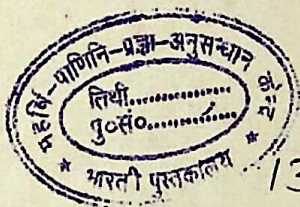 महर्षि-पाणिनि-प्रज्ञा-अनुसन्धान केन्द्र
तिथी..................
पु०सं०..................
* भारती पुस्तकालय *
13